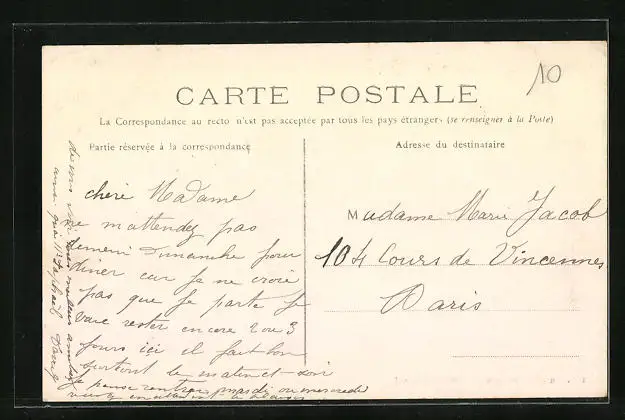 10
CARTE POSTALE
La Correspondance au recto n'est pas acceptée par tous les pays étrangers (se renseigner à la Poste)
Partie réservée à la correspondance
Adresse du destinataire
chère Madame
ne mattendez pas
demeni dimanche pour
diner car je ne croie
pas que je parte je
vais rester encore 2 ou 3
jours ici il fait bon
surtout le matin et soir
je pense rentrer mardi ou mercredi
Madame Marie Jacob
104 Cours de Vincennes
Paris